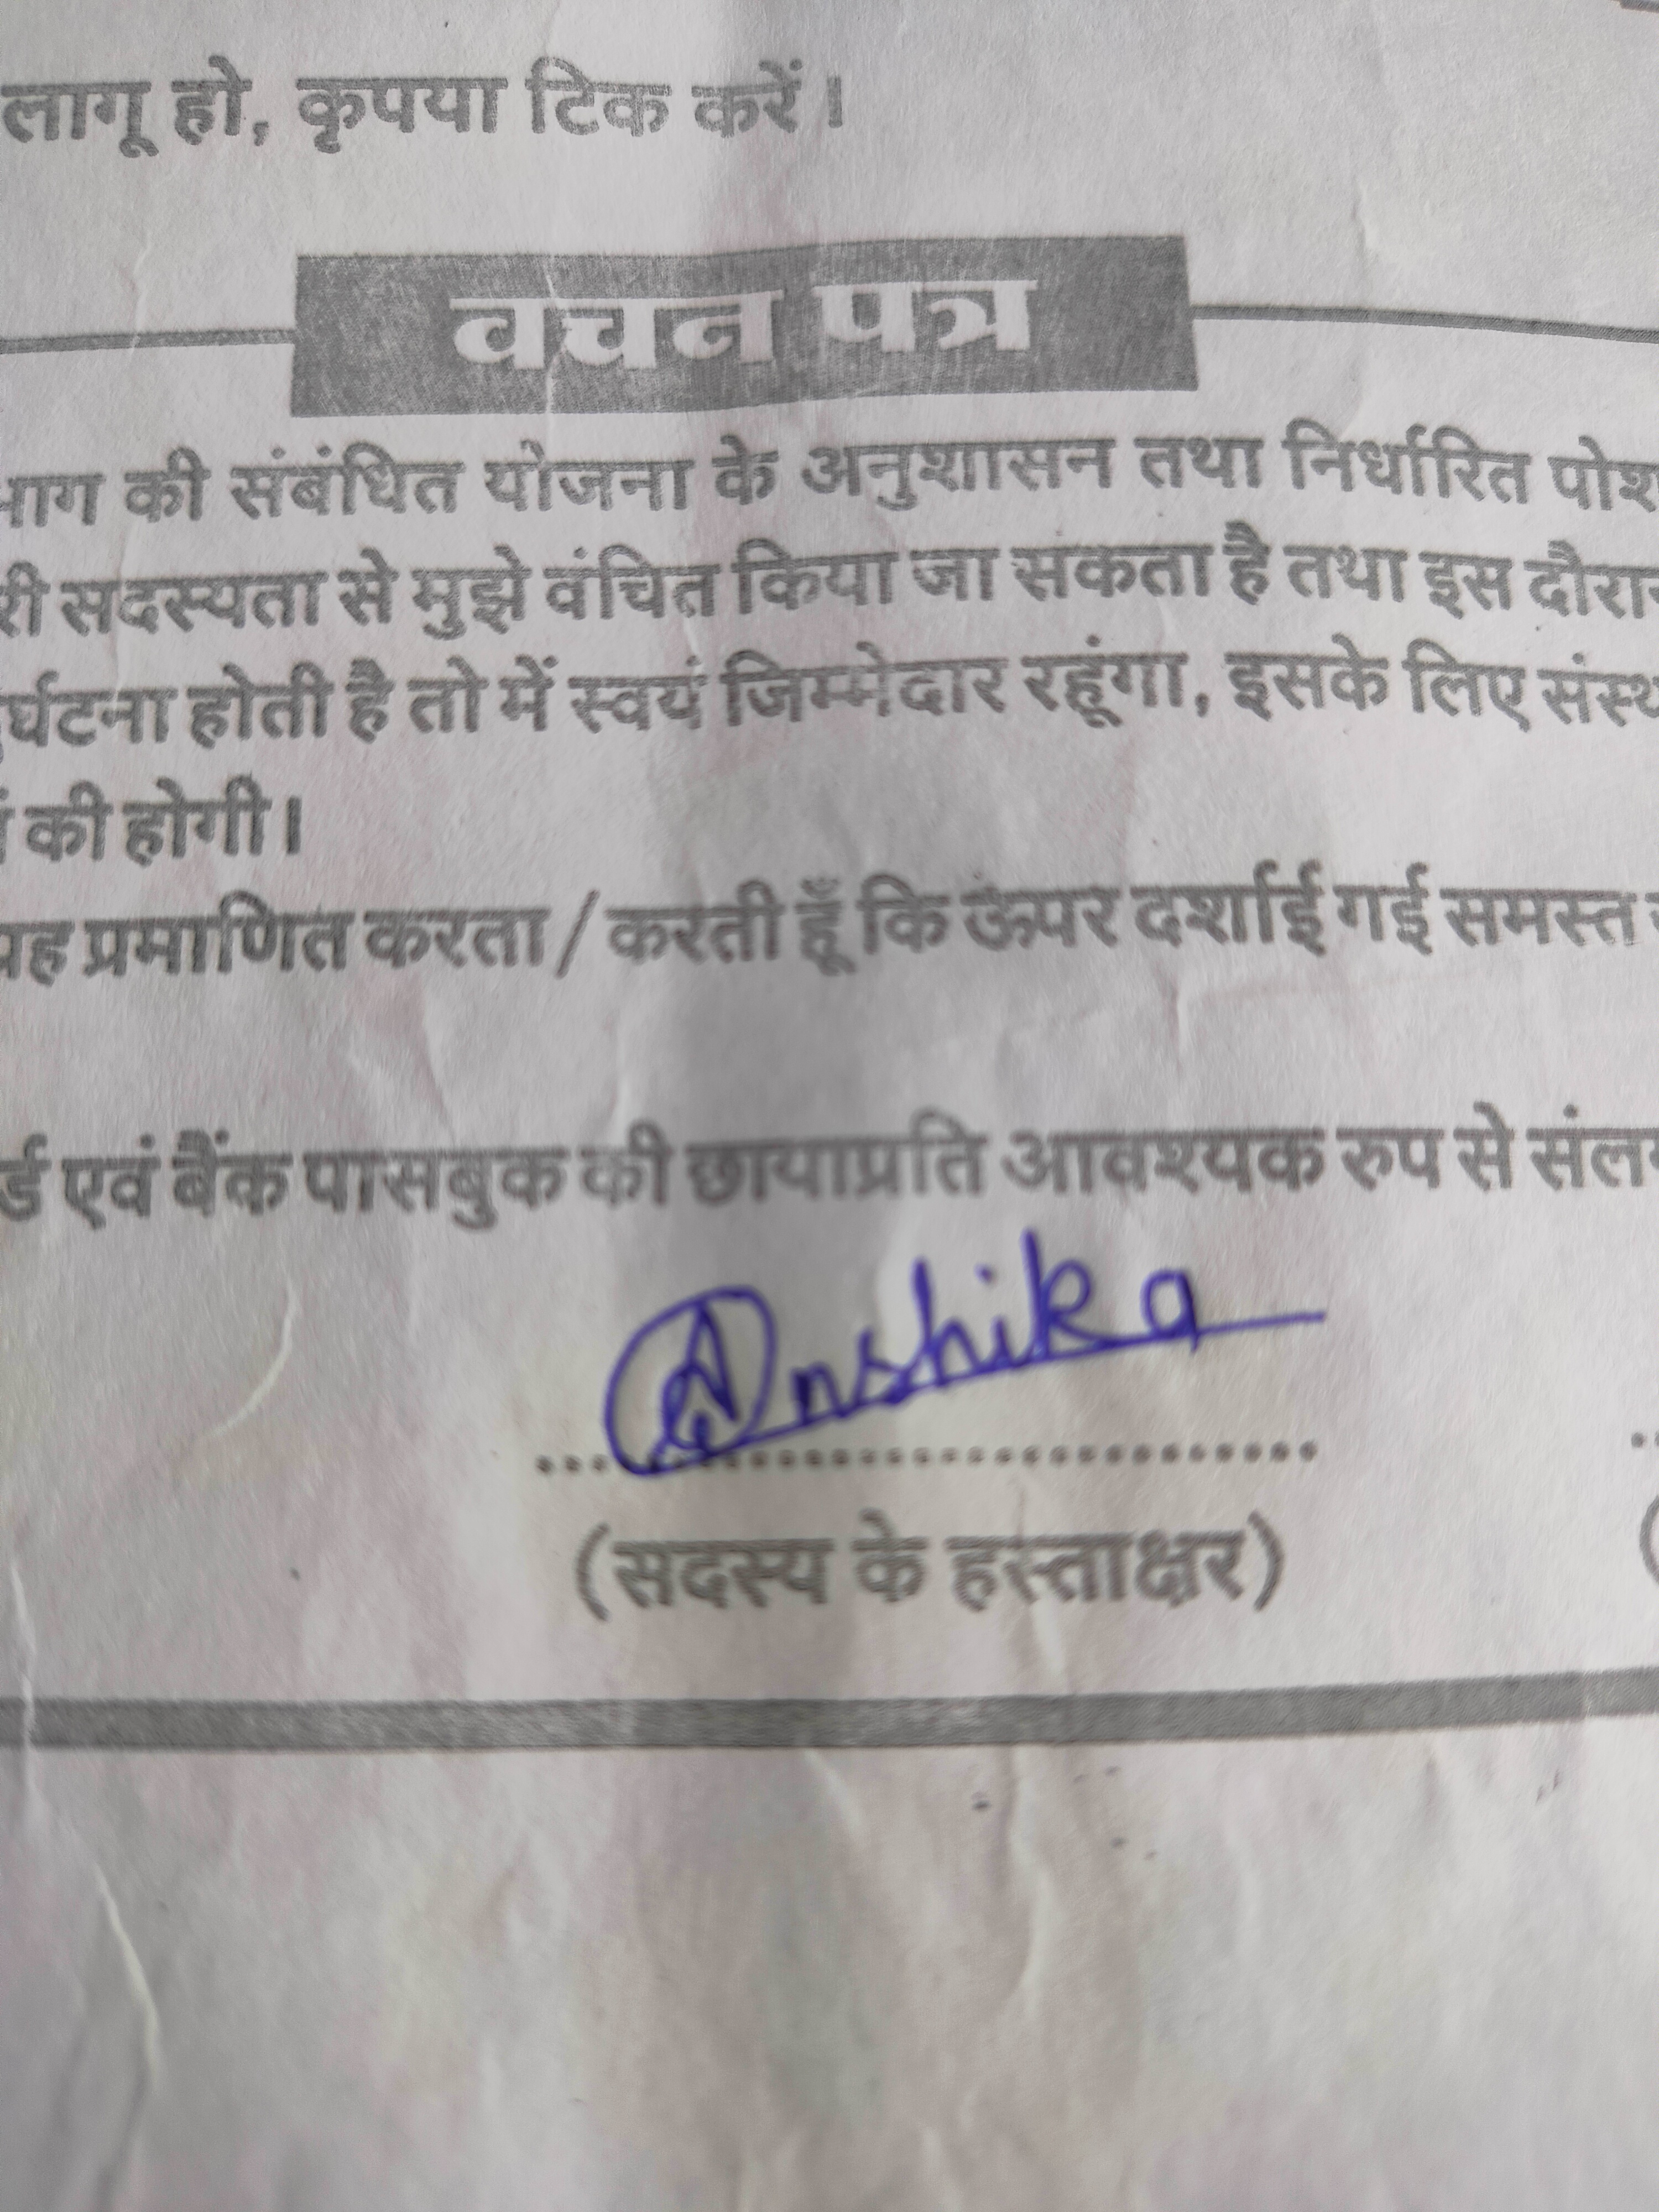 लागू हो, कृपया टिक करें।
वचन पत्र
की संबंधित योजना के अनुशासन तथा निर्धारित
सदस्यता से मुझे वंचित किया जा सकता है तथा इस
होती है तो में स्वयं जिम्मेदार रहूंगा, इसके लिए
की होगी।
प्रमाणित करता / करती हूँ कि ऊपर दर्शाई गई समस्त
एवं बैंक पासबुक की छायाप्रति आवश्यक रुप से
Anshika
(सदस्य के हस्ताक्षर)